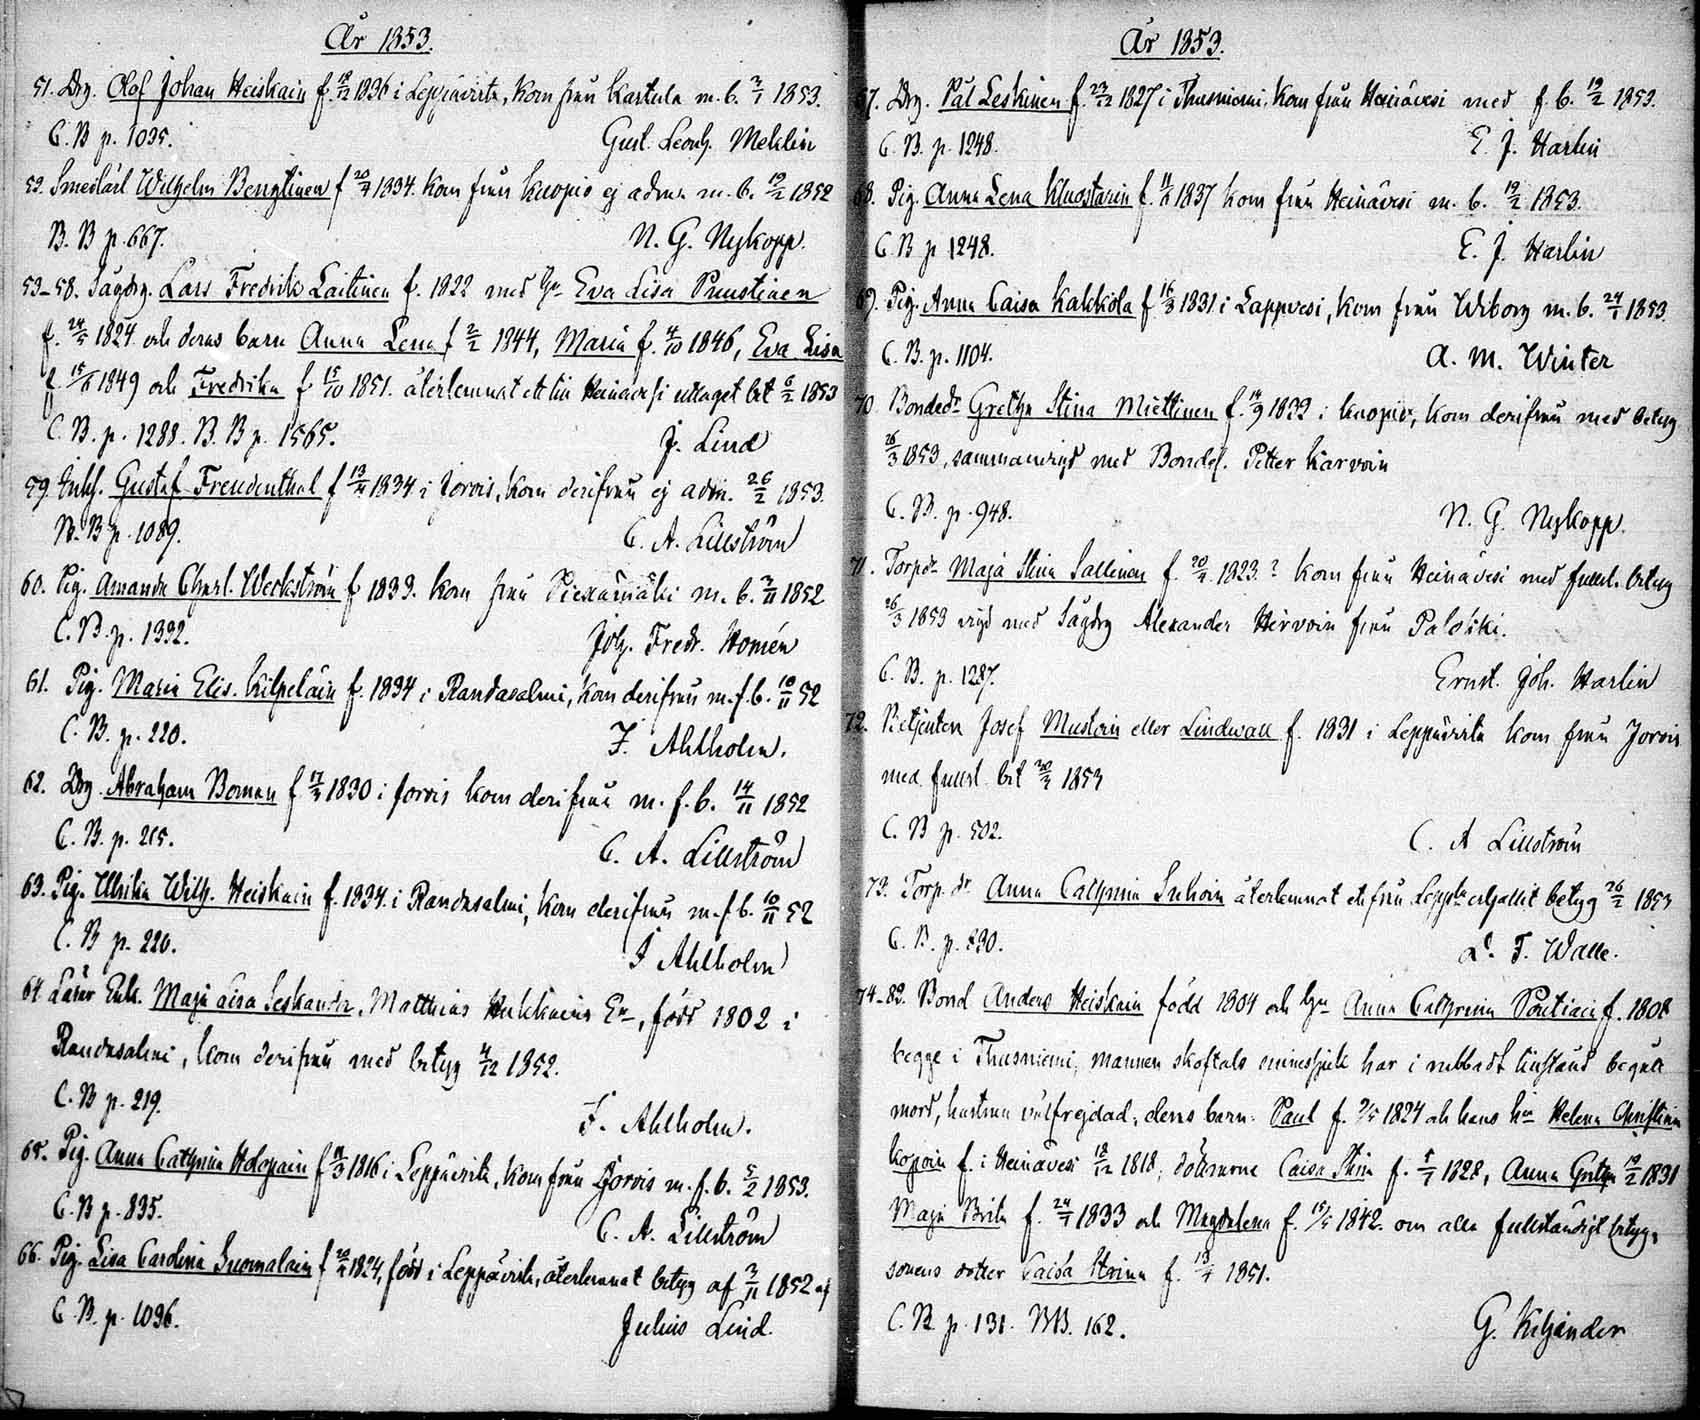 År 1853.
51. Drg. Olof Johan Heiskain f. 18/12 1836 i Leppävirta, kom från Kartula m. b. 3/1 1853.
C. B p. 1035. Gust. Leonh. Mehlin
52. Smedlärl Wilhelm Bengtinen f 20/7 1834. kom från Kuopio ej adm. m. b. 19/2 1852
B. B p. 667. N. G. Nykopp.
53-58. Sågdrg. Lars Fredrik Laitinen f. 1822 med Hu Eva Lisa Puustinen
f. 24/5 1824 och deras barn Anna Lena f 2/2 1844, Maria f. 4/10 1846, Eva Lisa
f. 15/6 1849 och Fredrika f 15/10 1851. återlemnat ett till Heinävesi uttaget bet 6/2 1853
C. B. p. 1288. B. B p. 1565. J. Lind
59. Gustaf Freudenthal f 13/11 1834 i Jorois, kom derifrån ej adm. 26/2 1853.
B. B p. 1089. C. A. Lillström
60. Pig. Amanda Charl. Weckström f 1833. kom från Piexämäki m. b. 3/11 1852
C. B. p. 1332. Joh. Fredr. Homén
61. Pig. Maria Elis. Kilpeläin f. 1834 i Randasalmi, kom derifrån m. f. b. 10/11 52
C. B. p. 220. F. Ahlholm.
62. Drg. Abraham Boman f 17/3 1830 i Jorois kom derifrån m. f. b. 14/11 1852
C. B. p. 215. C. A. Lillström
63. Pig. Ulrika Wilh. Heiskain f. 1834. i Randasalmi, kom derifrån m. f. b. 10/11 52
C. B p. 220. F Ahlholm
64 Enk. Maja Caisa Leskandr, Matthias Hukkains En, född 1802 i
Randasalmi, kom derifrån med betyg 4/12 1852.
C. B p. 219. F. Ahlholm.
65. Pig. Anna Cathrina Holopain f 11/3 1816 i Leppävirta, kom från Jorois m. f. b. 5/2 1853.
C. B p. 835. C. A. Lillström
66. Pig. Lisa Carolina Suomalain f 20/2 1824, född i Leppävirta, återlemnat betyg af 3/11 1852 af
C. B. p. 1036. Julius Lind.
År 1853.
67. Drg. Pål Leskinen f. 23/12 1827 i Thusniemi, kom från Heinävesi med f. b. 19/2 1853.
C. B. p. 1248. E. J. Harlin
68. Pig. Anna Lena Kluostarin f. 11/6 1837 kom från Heinävesi m. b. 19/2 1853.
C. B p 1248. E. J. Harlin
69. Pig. Anna Caisa Kakkola f 16/3 1831 i Lappvesi, kom från Wiborg m. b. 24/1 1853
C. B. p. 1104. A. M. Winter
70. Bondedr Gretha Stina Miettinen f. 14/9 1833 i Kuopio, kom derifrån med betyg
26/3 1853, sammanvigd med Bondes. Petter Karvoin
C. B. p. 948. N. G. Nykopp.
71. Torpdr Maja Stina Sallinen f. 20/4 1823.? kom från Heinävesi med fullst. betyg
26/3 1853 vigd med Sågdrg Alexander Hirvoin från Palóiski.
C. B. p. 1287. Ernst. Joh. Harlin
72. Betjenten Josef Mustoin eller Lindwall f. 1831 i Leppävirta kom från Jorois
med fullst. bet 20/3 1853
C. B p. 502. C. A Lillström
73. Torp. dr Anna Cathrina Suhoin återlemnat ett från Leppla erhållit betyg 26/2 1853
C. B. p. 830. L. F. Walle.
74-82. Bond Anders Heiskain född 1804 och Hu Anna Cathrina Poutiain f. 1808
begge i Thusniemi, mannen skoftals sinnessjuk har i rubbadt tillstånd begått
mord, hustrun välfrejdad, deras barn: Paul f. 7/5 1824 och hans Hu Helena Christina
Kopoin f. i Heinävesi 18/12 1818, döttrarne Caisa Stina f. 5/7 1828, Anna Gretha 19/2 1831
Maja Brita f. 24/7 1833 och Magdalena f. 15/5 1842. om alla fullständigt betyg,
sonens dotter Caisa Stina f. 13/4 1851.
C. B. p. 131. BB. 162. G. Kiljander